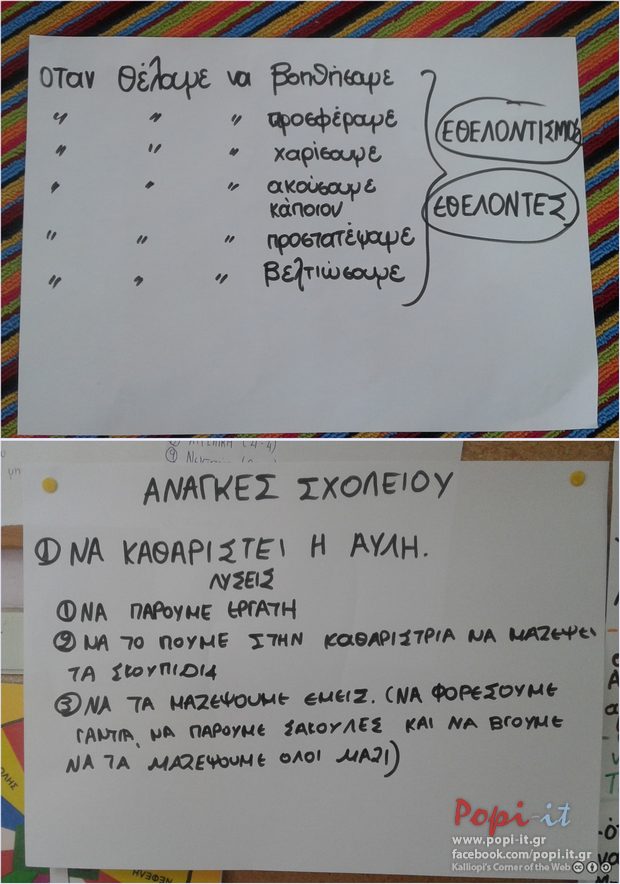 Οταν θέλαμε να βοηθήσαμε
" " " προσφέραμε
" " " χαρίσαμε
" " " ακούσαμε
κάποιον
" " " προστατέψαμε
" " " βελτιώσαμε
ΕΘΕΛΟΝΤΙΣΜΟΣ
ΕΘΕΛΟΝΤΕΣ
ΑΝΑΓΚΕΣ ΣΧΟΛΕΙΟΥ
① ΝΑ ΚΑΘΑΡΙΣΤΕΙ Η ΑΥΛΗ.
ΛΥΣΕΙΣ
① ΝΑ ΠΑΡΟΥΜΕ ΕΡΓΑΤΗ
② ΝΑ ΤΟ ΠΟΥΜΕ ΣΤΗΝ ΚΑΘΑΡΙΣΤΡΙΑ ΝΑ ΜΑΖΕΨΕΙ
ΤΑ ΣΚΟΥΠΙΔΙΑ
③ ΝΑ ΤΑ ΜΑΖΕΨΟΥΜΕ ΕΜΕΙΣ. (ΝΑ ΦΟΡΕΣΟΥΜΕ
ΓΑΝΤΙΑ, ΝΑ ΠΑΡΟΥΜΕ ΣΑΚΟΥΛΕΣ ΚΑΙ ΝΑ ΒΓΟΥΜΕ
ΝΑ ΤΑ ΜΑΖΕΨΟΥΜΕ ΟΛΟΙ ΜΑΖΙ)
ΝΕΦΕΛΗ
Popi-it
www.popi-it.gr
facebook.com/popi-it.gr
Kalliopi's Corner of the Web